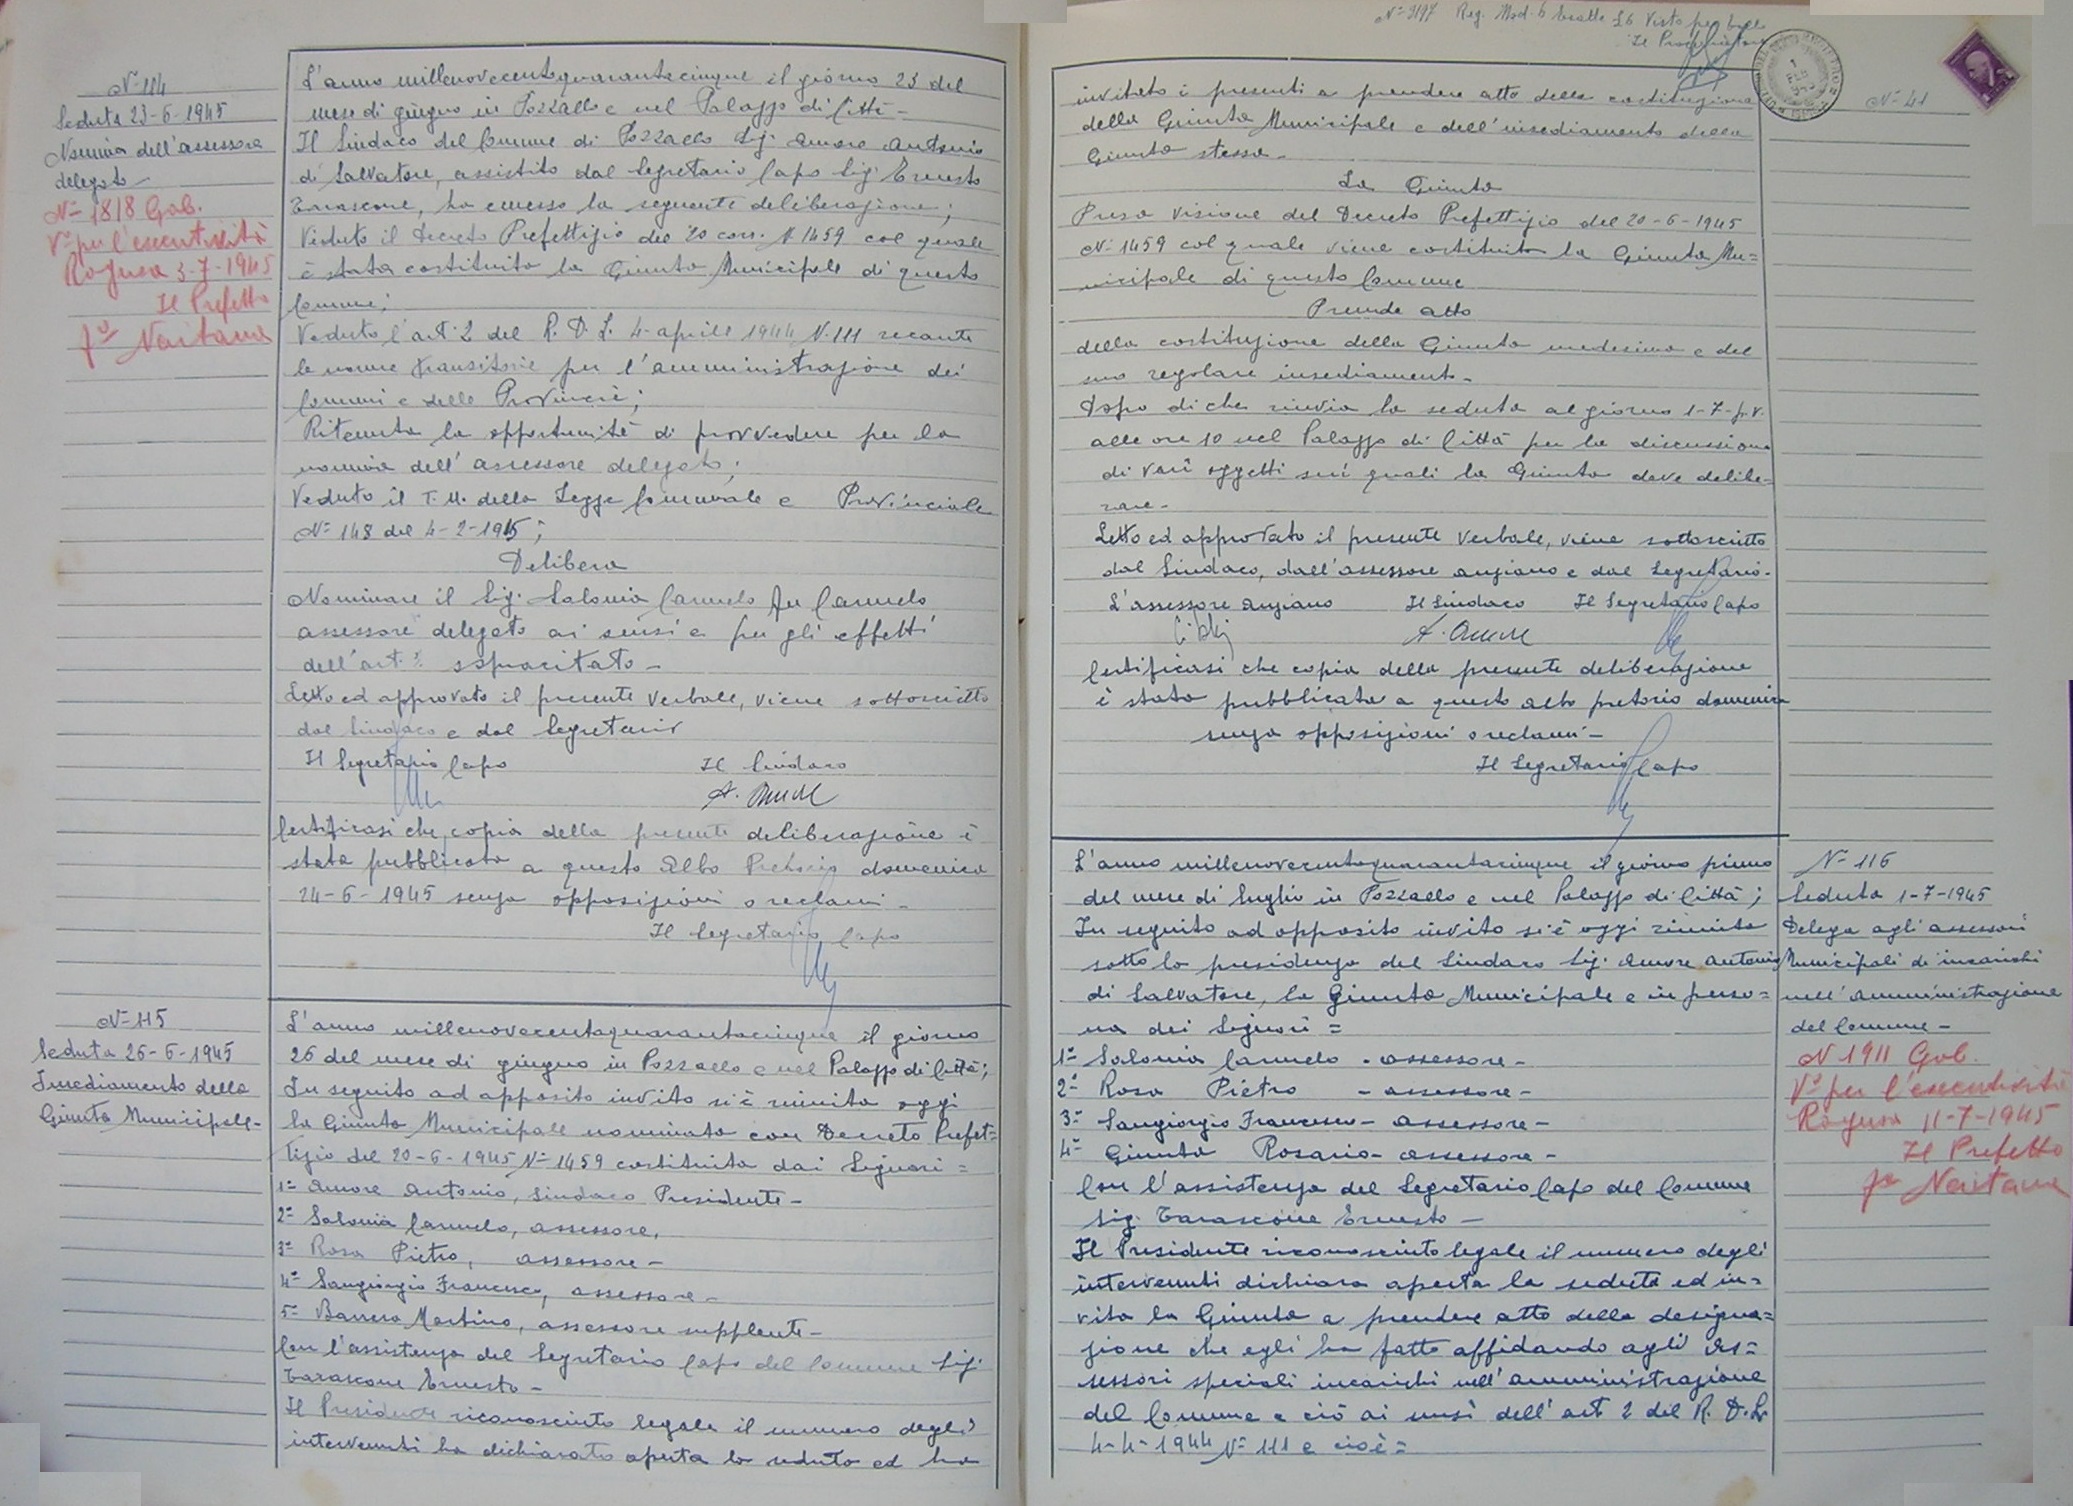 N° 114
Seduta 23-6-1945
Nomina dell'assessore
delegato -
N° 1818 Gab.
V° per l'esecutività
Ragusa 3-7-1945
Il Prefetto
f°
L'anno millenovecentoquarantacinque il giorno 23 del
mese di giugno in Pozzallo e nel Palazzo di Città -
Il Sindaco del Comune di Pozzallo Sig. Amore Antonio
di Salvatore, assistito dal Segretario Capo Sig. Ernesto
Tarascone, ha emesso la seguente deliberazione;
Veduto il Decreto Prefettizio del 20 corr. N 1459 col quale
è stata costituita la Giunta Municipale di questo
Comune;
Veduto l'art. 2 del R. D. L. 4 aprile 1944 N. 111 recante
le norme transitorie per l'amministrazione dei
Comuni e delle Provincie;
Ritenuta la opportunità di provvedere per la
nomina dell'assessore delegato;
Veduto il T. U. della Legge Comunale e Provinciale
N° 148 del 4-2-1915;
Delibera
Nominare il Sig. Salonia Carmelo fu Carmelo
assessore delegato ai sensi e per gli effetti
dell'art. 2 sopracitato -
Letto ed approvato il presente verbale, viene sottoscritto
dal Sindaco e dal Segretario
Il Segretario Capo Il Sindaco
A. Amore
Certificasi che copia della presente deliberazione è
stata pubblicata a questo Albo Pretorio domenica
24-6-1945 senza opposizioni o reclami -
Il Segretario Capo
N° 115
Seduta 26-6-1945
Insediamento della
Giunta Municipale -
L'anno millenovecentoquarantacinque il giorno
26 del mese di giugno in Pozzallo e nel Palazzo di Città;
In seguito ad apposito invito si è riunita oggi
la Giunta Municipale nominata con Decreto Prefet=
tizio del 20-6-1945 N° 1459 costituita dai Signori =
1° Amore Antonio, Sindaco Presidente -
2° Salonia Carmelo, assessore,
3° Rosa Pietro, assessore -
4° Sangiorgio Francesco, assessore -
5° Barrera Martino, assessore supplente -
Con l'assistenza del Segretario Capo del Comune Sig.
Tarascone Ernesto -
Il Presidente riconosciuto legale il numero degli
intervenuti ha dichiarato aperta la seduta ed ha
N° 3197 Reg. Mod. 6 Esatte £ 6 Visto per bollo
Il Procuratore
N° 41
invitato i presenti a prendere atto della costituzione
della Giunta Municipale e dell'insediamento della
Giunta stessa -
La Giunta
Presa visione del Decreto Prefettizio del 20-6-1945
N° 1459 col quale viene costituita la Giunta Mu=
nicipale di questo Comune
Prende atto
della costituzione della Giunta medesima e del
suo regolare insediamento -
Dopo di che rinvia la seduta al giorno 1-7-p.v.
alle ore 10 nel Palazzo di Città per la discussione
di varî oggetti sui quali la Giunta deve delibe-
rare -
Letto ed approvato il presente verbale, viene sottoscritto
dal Sindaco, dall'assessore anziano e dal Segretario -
L'assessore anziano Il Sindaco Il Segretario Capo
A. Amore
Certificasi che copia della presente deliberazione
è stata pubblicata a questo albo pretorio domenica
senza opposizioni o reclami -
Il Segretario Capo
L'anno millenovecentoquarantacinque il giorno primo
del mese di luglio in Pozzallo e nel Palazzo di Città;
In seguito ad apposito invito si è oggi riunita
sotto la presidenza del Sindaco Sig. Amore Antonio
di Salvatore, la Giunta Municipale e in perso=
na dei Signori =
1° Salonia Carmelo - assessore -
2° Rosa Pietro - assessore -
3° Sangiorgio Francesco - assessore -
4° Giunta Rosario - assessore -
Con l'assistenza del Segretario Capo del Comune
Sig. Tarascone Ernesto -
Il Presidente riconosciuto legale il numero degli
intervenuti dichiara aperta la seduta ed in=
vita la Giunta a prendere atto della designa=
zione che egli ha fatto affidando agli As=
sessori speciali incarichi nell'amministrazione
del Comune e ciò ai sensi dell'art 2 del R. D. L.
4-4-1944 N° 111 e cioè =
N° 116
Seduta 1-7-1945
Delega agli assessori
Municipali di incarichi
nell'amministrazione
del Comune -
N 1911 Gab.
V° per l'esecutività
Ragusa 11-7-1945
Il Prefetto
f°